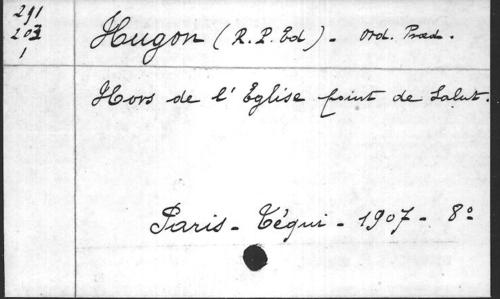 291
203
1
Hugon (R. P. Ed) - Ord. Præd.
Hors de l'Eglise point de Salut.
Paris - Téqui - 1907 - 8º